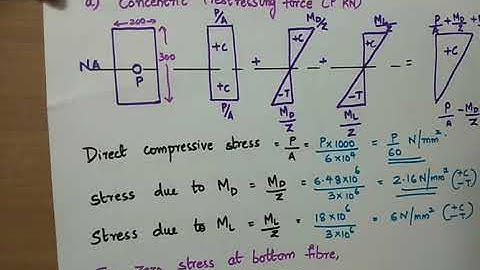 a) Concentric Prestressing force (P KN)
200
300
NA
P
P/A
+C
+C
P/A
+
M_D/Z
+C
-T
M_D/Z
+
M_L/Z
+C
-T
M_L/Z
=
P/A + M_D/Z +
+C
P/A - M_D/Z
Direct compressive stress = P/A = P×1000/6×10⁴ = P/60 N/mm².
Stress due to M_D = M_D/Z = 6.48×10⁶/3×10⁶ = 2.16 N/mm² (+C -T)
Stress due to M_L = M_L/Z = 18×10⁶/3×10⁶ = 6 N/mm² (+C -T)
For Zero stress at bottom fibre,